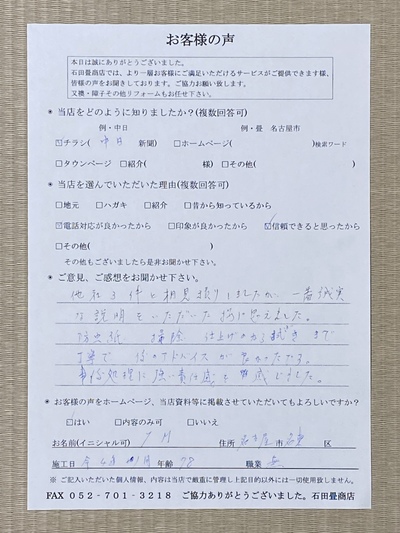 お客様の声
本日は誠にありがとうございました。
石田畳商店では、より一層お客様にご満足いただけるサービスがご提供できます様、
皆様の声をお聞きしております。ご協力お願い致します。
又襖・障子その他リフォームもお任せ下さい。
* 当店をどのように知りましたか?(複数回答可)
例・中日 例・畳 名古屋市
☑チラシ( 中日 新聞) □ホームページ( )検索ワード
□タウンページ □紹介( 様) □その他( )
* 当店を選んでいただいた理由(複数回答可)
□地元 □ハガキ □紹介 □昔から知っているから
☑電話対応が良かったから □印象が良かったから ☑信頼できると思ったから
□その他( )
その他もございましたら是非お聞かせ下さい。
* ご意見、ご感想をお聞かせ下さい。
他社3件と相見積りしましたが、一番誠実
な説明をいただいた様に思えました。
防虫紙 掃除 仕上げのカラ拭きまで
丁寧で 後のアドバイスが良かったです。
事後処理に強い責任感を
* お客様の声をホームページ、当店資料等に掲載させていただいてもよろしいですか?
☑はい □内容のみ可 □いいえ
お名前(イニシャル可) 住所 名古屋市 区
施工日 年 月 年齢 78 職業
※ ご記入いただいた個人情報、内容は当店で厳重に管理し上記目的以外には一切使用致しません。
FAX 052-701-3218 ご協力ありがとうございました。石田畳商店